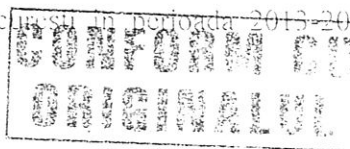 în perioada 2013-20
CONFORM CU
ORIGINALUL